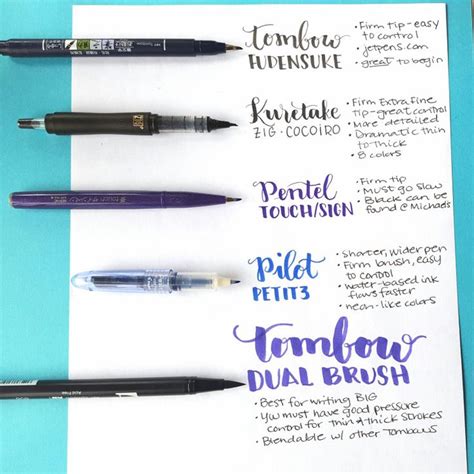 Tombow
FUDENSUKE
• Firm tip - easy
to control
• jetpens.com
• great to begin
Kuretake
ZIG · COCOIRO
• Firm Extra fine
tip - great control
• More detailed
• Dramatic thin
to thick
• 8 colors
Pentel
TOUCH/SIGN
• Firm tip
• Must go slow
• Black can be
found @ Michaels
Pilot
PETIT3
• Shorter, wider pen
• Firm brush, easy
to control
• water-based ink
flows faster
• neon-like colors
Tombow
DUAL BRUSH
• Best for writing BIG
• You must have good pressure
control for thin & thick strokes
• Blendable w/ other Tombows